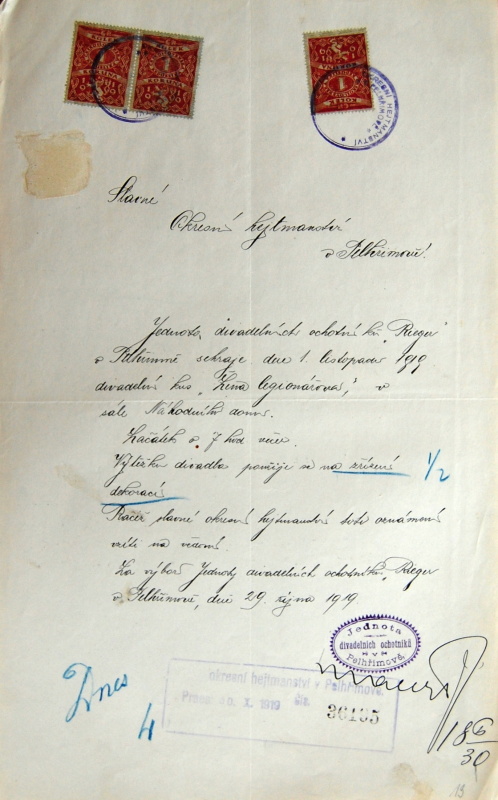 Slavné
Okresní hejtmanství
v Pelhřimově!
Jednota divadelních ochotníků „Rieger"
v Pelhřimově sehraje dne 1. listopadu 1919
divadelní kus „Žena legionářova", v
sále Národního domu.
Začátek o 7 hod večer.
Výtěžku divadla použije se na zřízení
1/2
dekorací
Račiž slavné okresní hejtmanství toto oznámení
vzíti na vědomí.
Za výbor Jednoty divadelních ochotníků „Rieger
v Pelhřimově, dne 29. října 1919
Jednota
divadelních ochotníků
v
Pelhřimově.
okresní hejtmanství v Pelhřimově.
X. 1919 čís.
36135
Dnes
4
186/30